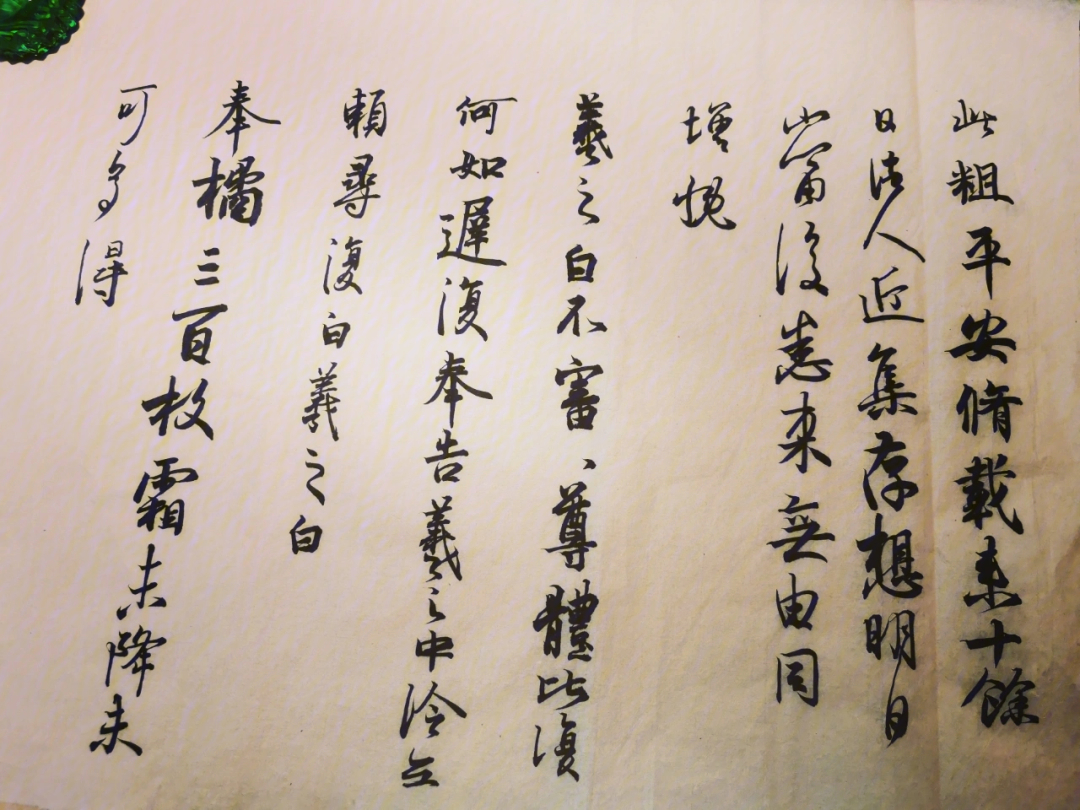 此粗平安脩載来十餘
日諸人近集存想明日
當復悉来無由同
增慨
羲之白不審、尊體比復
何如遲復奉告羲之中冷無
賴尋復白羲之白
奉橘三百枚霜未降未
可多得